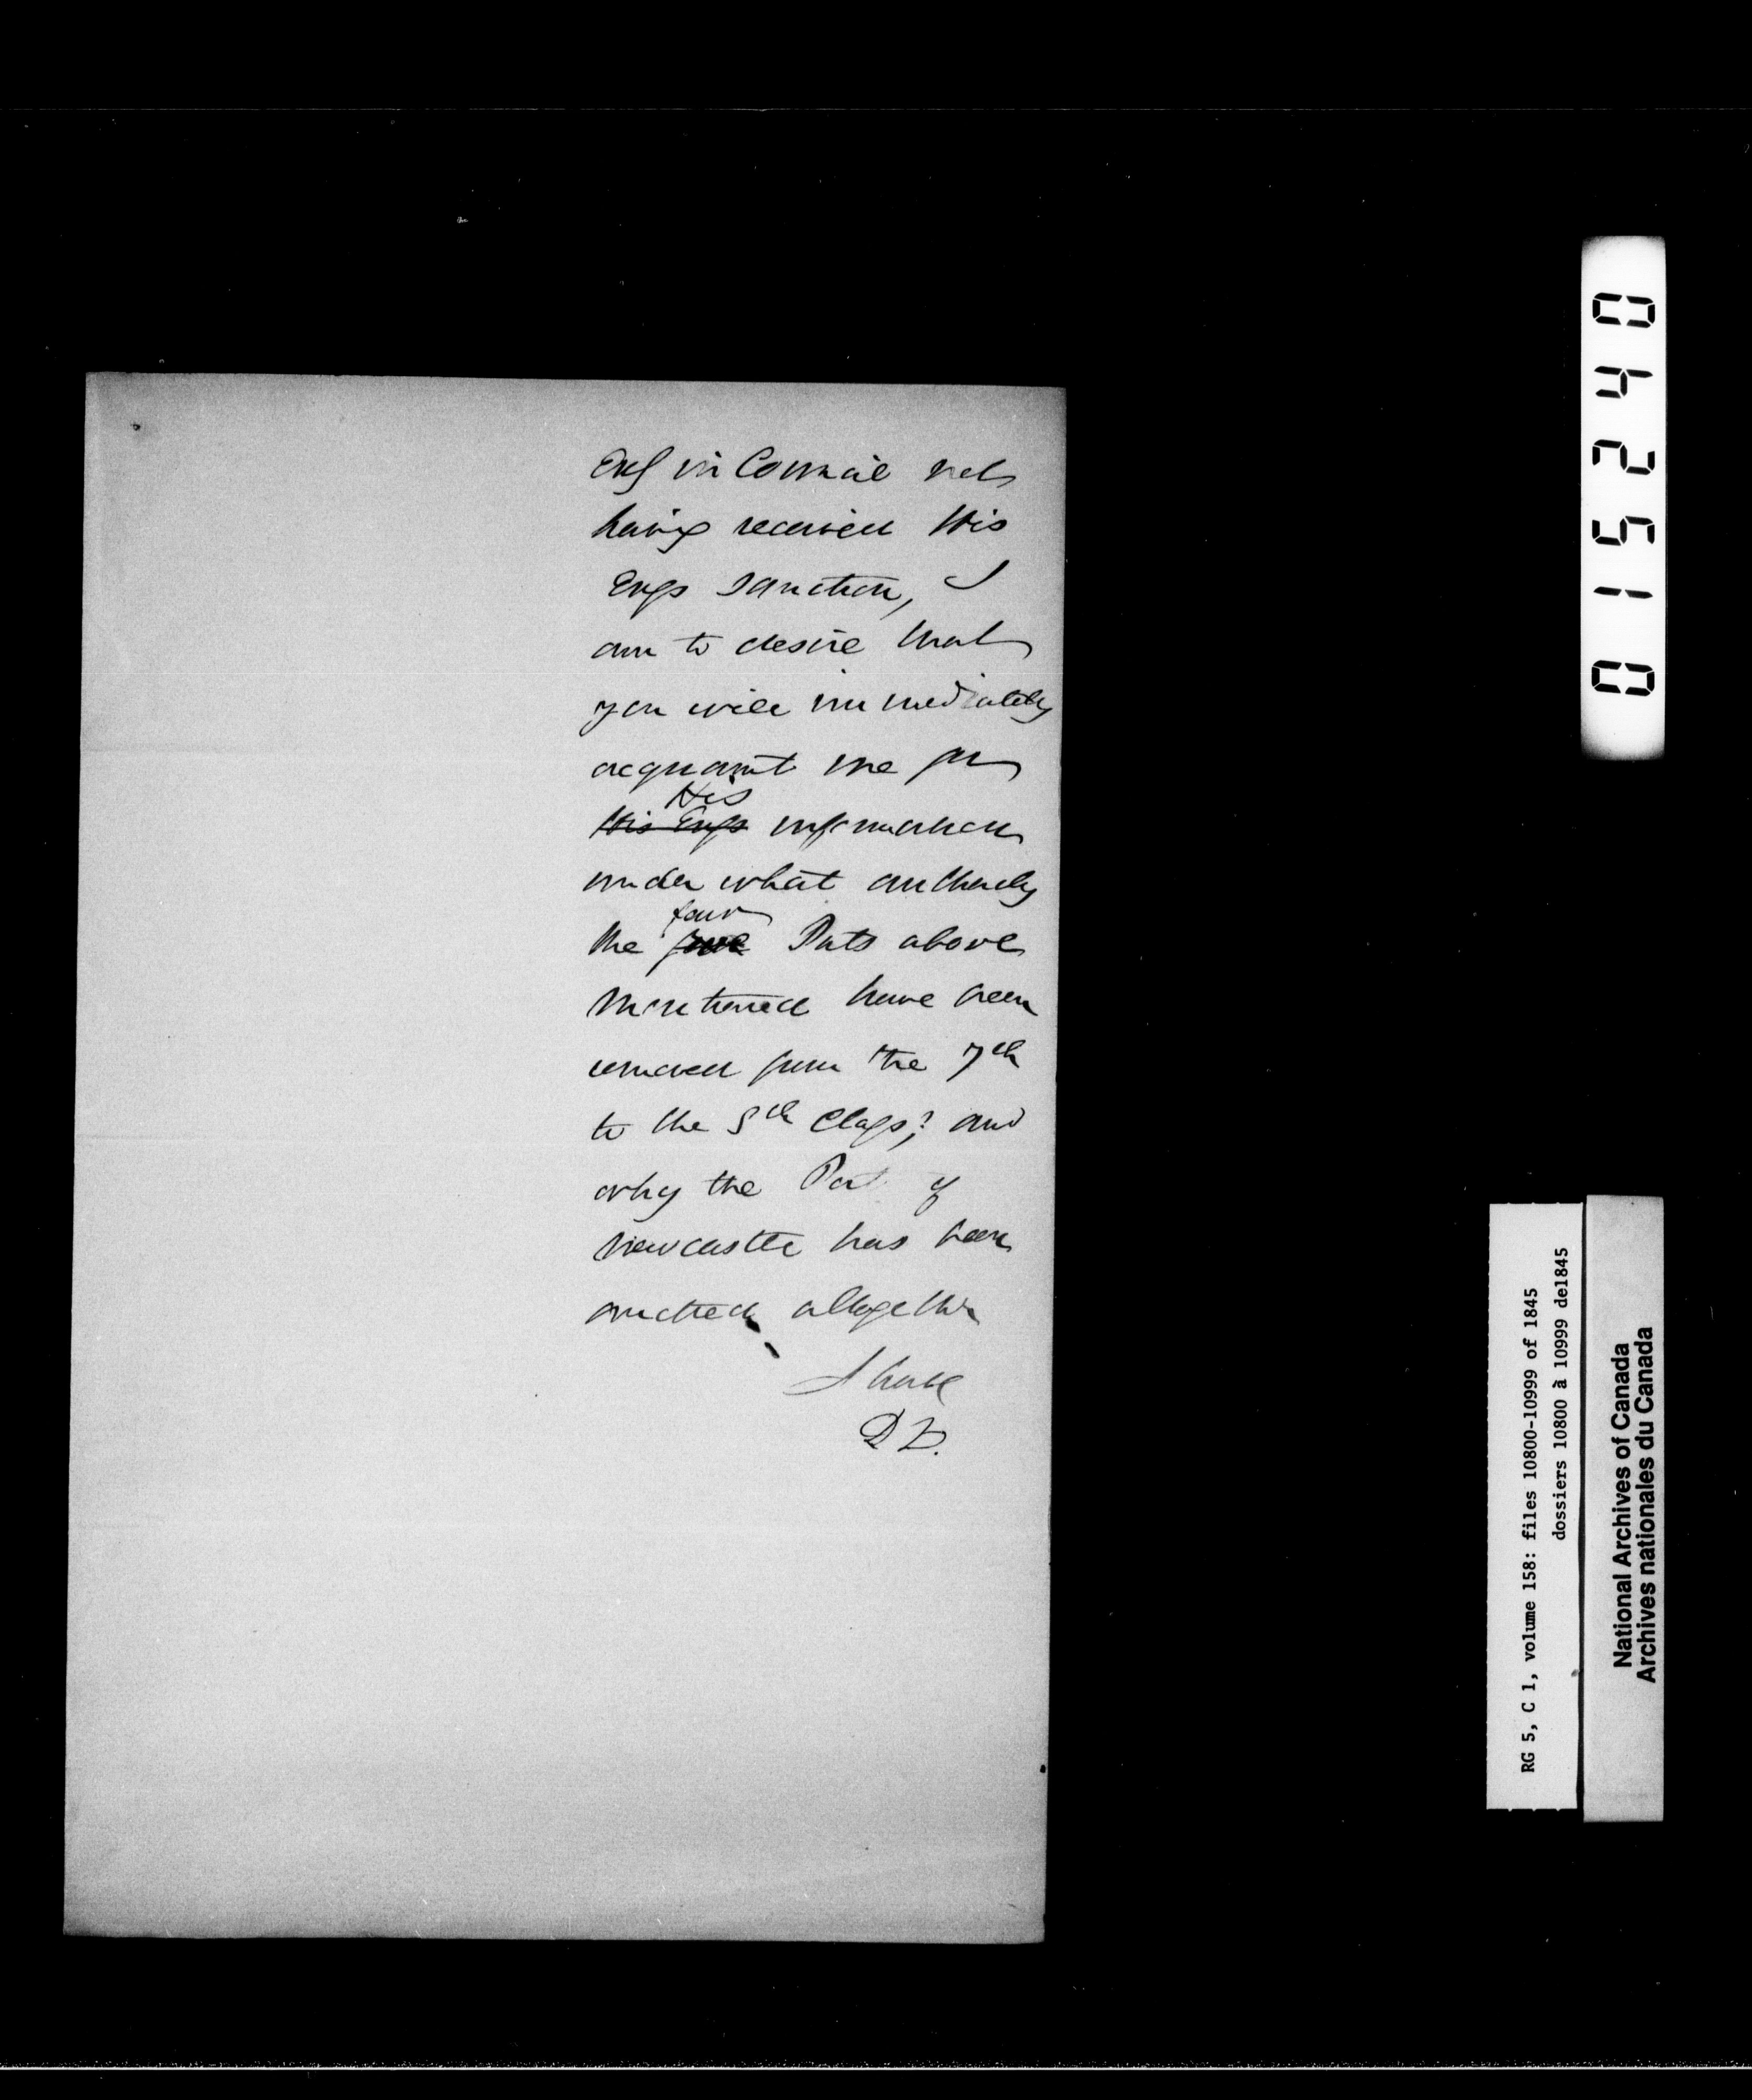 Exy in Council not
having received His
Exys sanction, I
am to desire that
you will immediately
acquaint me for
His
His Exys information
under what authority
the four five Ports above
mentioned have been
removed from the 7th
to the 5th Class; and
why the Port of
Newcastle has been
omitted altogether
I have
D D.
015240
RG 5, C 1, volume 158: files 10800-10999 of 1845
dossiers 10800 à 10999 de1845
National Archives of Canada
Archives nationales du Canada